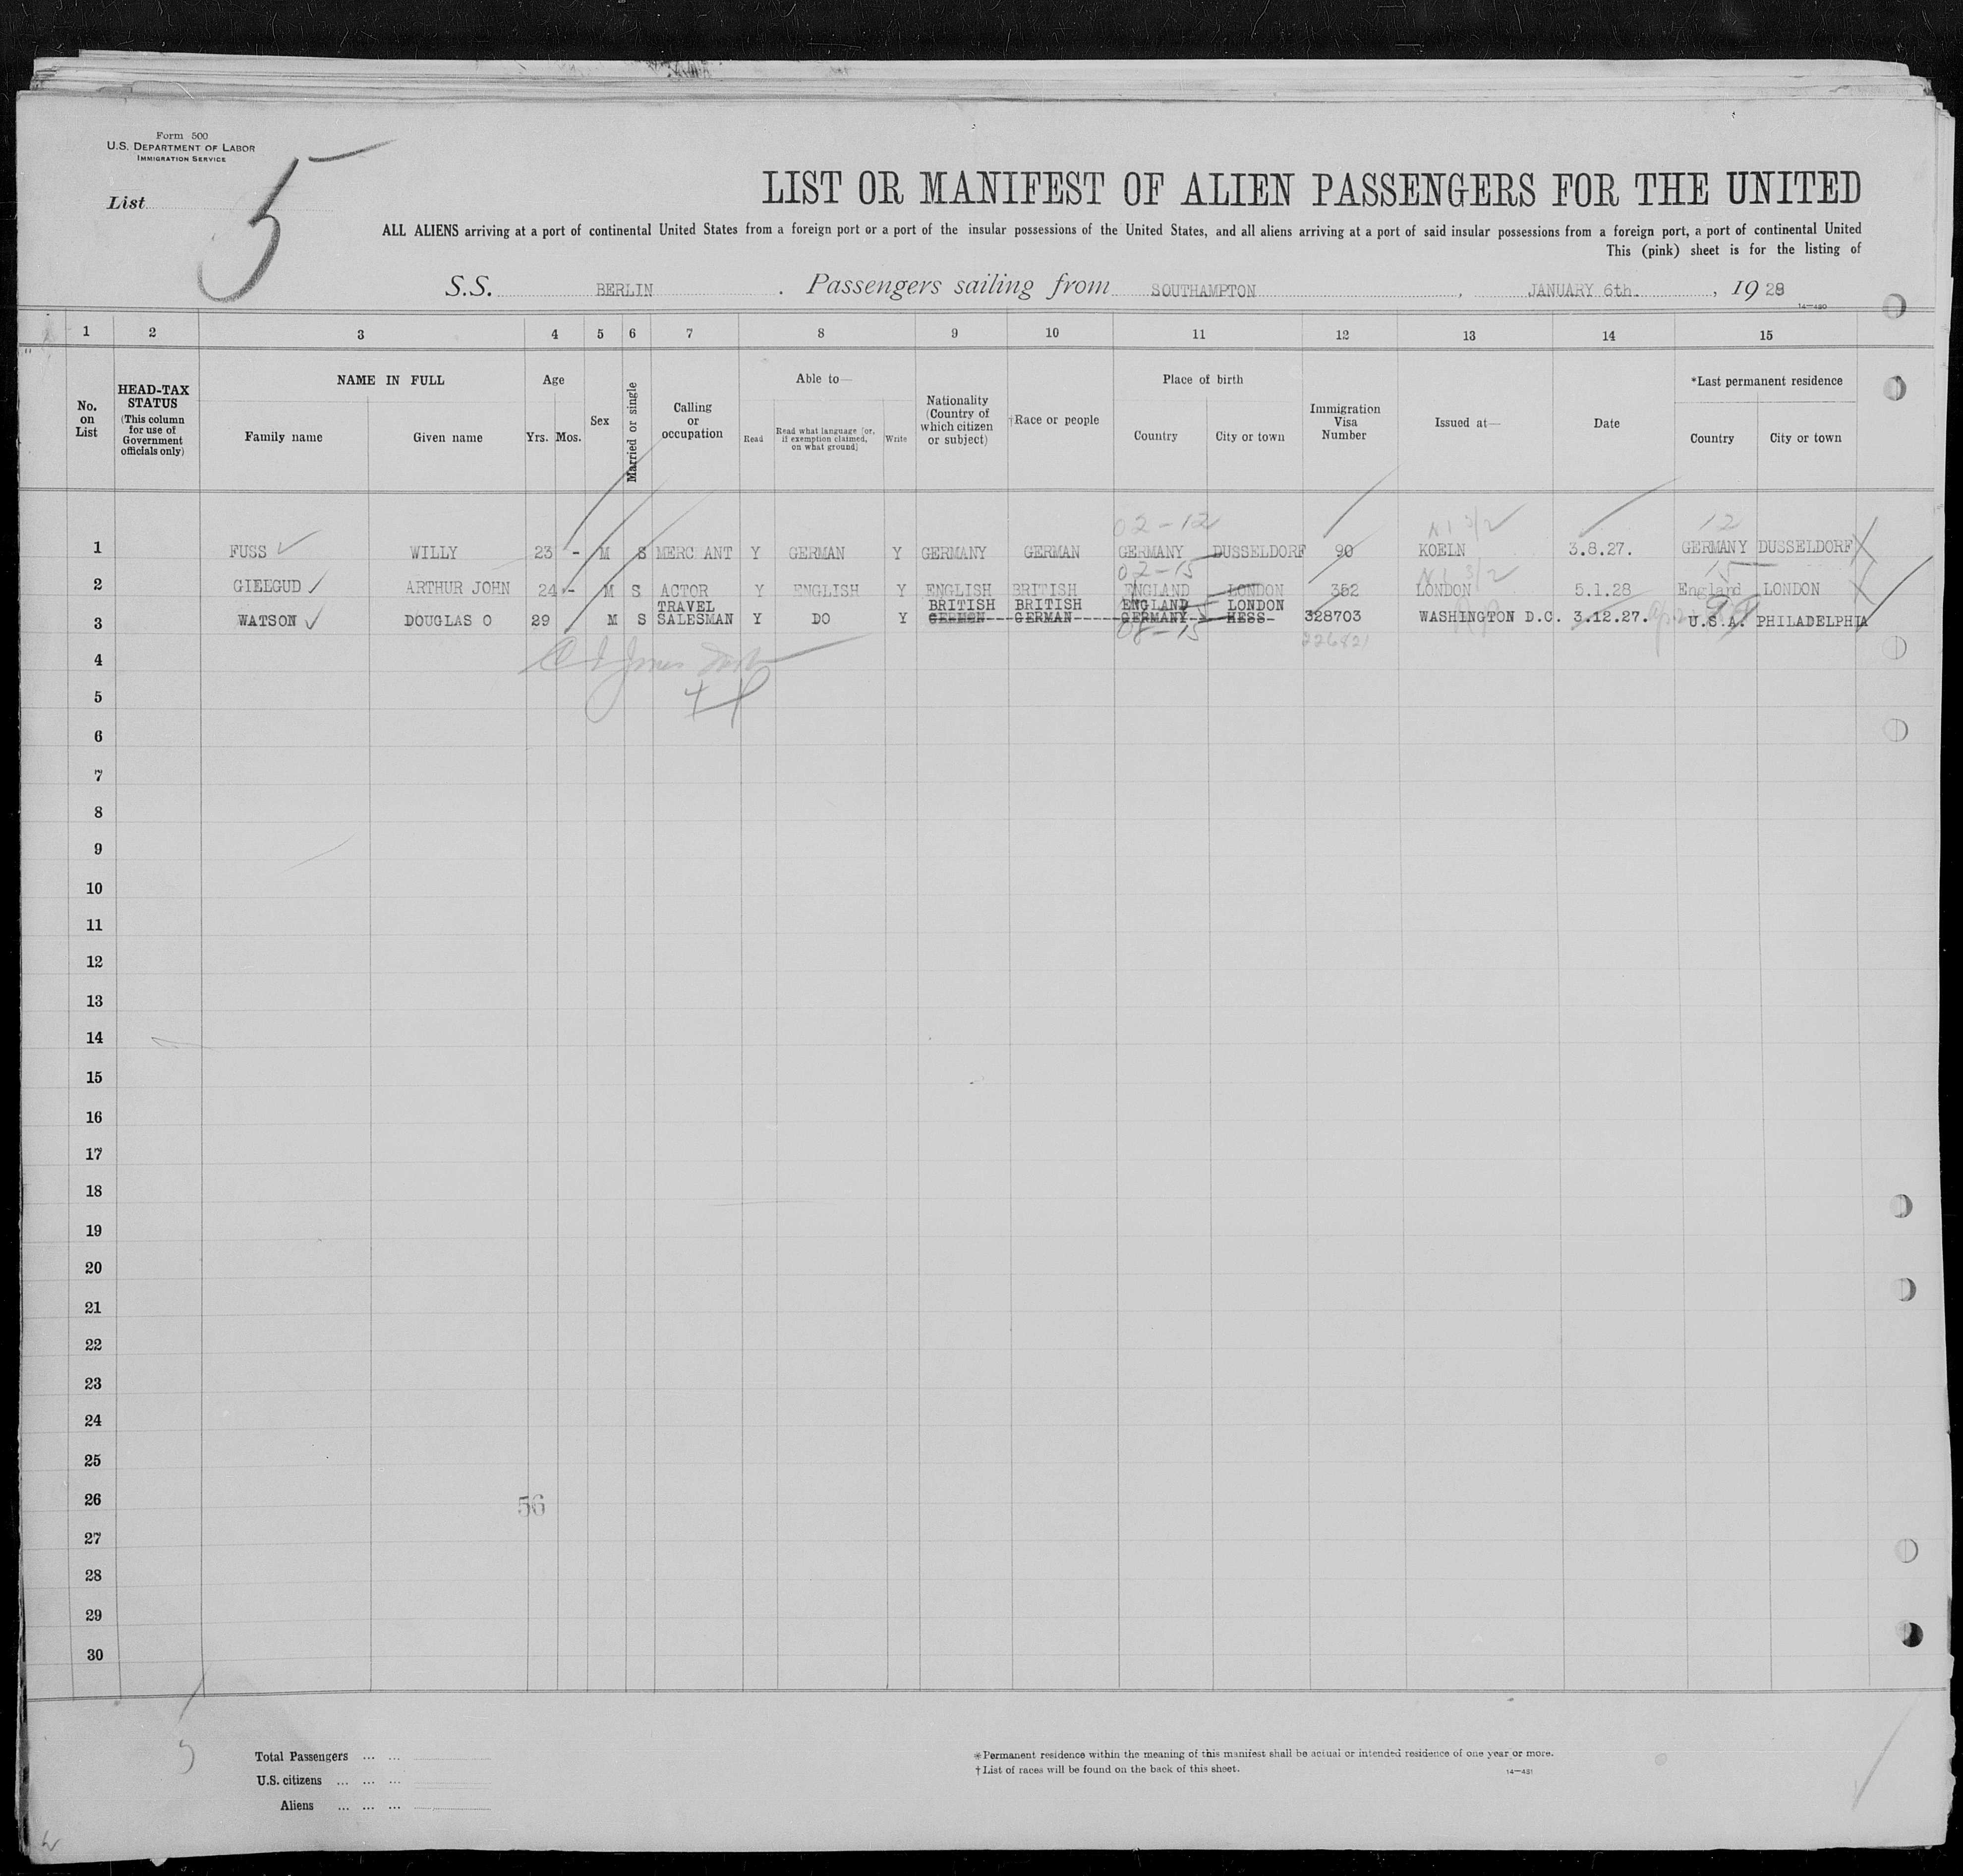 Form 500
U.S. DEPARTMENT OF LABOR
IMMIGRATION SERVICE
List 5
LIST OR MANIFEST OF ALIEN PASSENGERS FOR THE UNITED
ALL ALIENS arriving at a port of continental United States from a foreign port or a port of the insular possessions of the United States, and all aliens arriving at a port of said insular possessions from a foreign port, a port of continental United
This (pink) sheet is for the listing of
S.S. BERLIN. Passengers sailing from SOUTHAMPTON, JANUARY 6th., 1928
14—430
1 2 3 4 5 6 7 8 9 10 11 12 13 14 15
No. on List
HEAD-TAX STATUS (This column for use of Government officials only)
NAME IN FULL
Family name
Given name
Age
Yrs. Mos.
Sex
Married or single
Calling or occupation
Able to—
Read
Read what language [or, if exemption claimed, on what ground]
Write
Nationality (Country of which citizen or subject)
†Race or people
Place of birth
Country
City or town
Immigration Visa Number
Issued at—
Date
*Last permanent residence
Country
City or town
02-12 12
1 FUSS WILLY 23 - M S MERC ANT Y GERMAN Y GERMANY GERMAN GERMANY DUSSELDORF 90 KOELN 3.8.27. GERMANY DUSSELDORF
02-15 15
2 GIELGUD ARTHUR JOHN 24 - M S ACTOR Y ENGLISH Y ENGLISH BRITISH ENGLAND LONDON 352 LONDON 5.1.28 England LONDON
TRAVEL BRITISH BRITISH ENGLAND LONDON
3 WATSON DOUGLAS O 29 M S SALESMAN Y DO Y GERMAN GERMAN GERMANY HESS 328703 WASHINGTON D.C. 3.12.27. U.S.A. PHILADELPHIA
08-15
4
5
6
7
8
9
10
11
12
13
14
15
16
17
18
19
20
21
22
23
24
25
26
56
27
28
29
30
Total Passengers ... ...
U.S. citizens ... ... ...
Aliens ... ... ...
*Permanent residence within the meaning of this manifest shall be actual or intended residence of one year or more.
†List of races will be found on the back of this sheet.
14—431